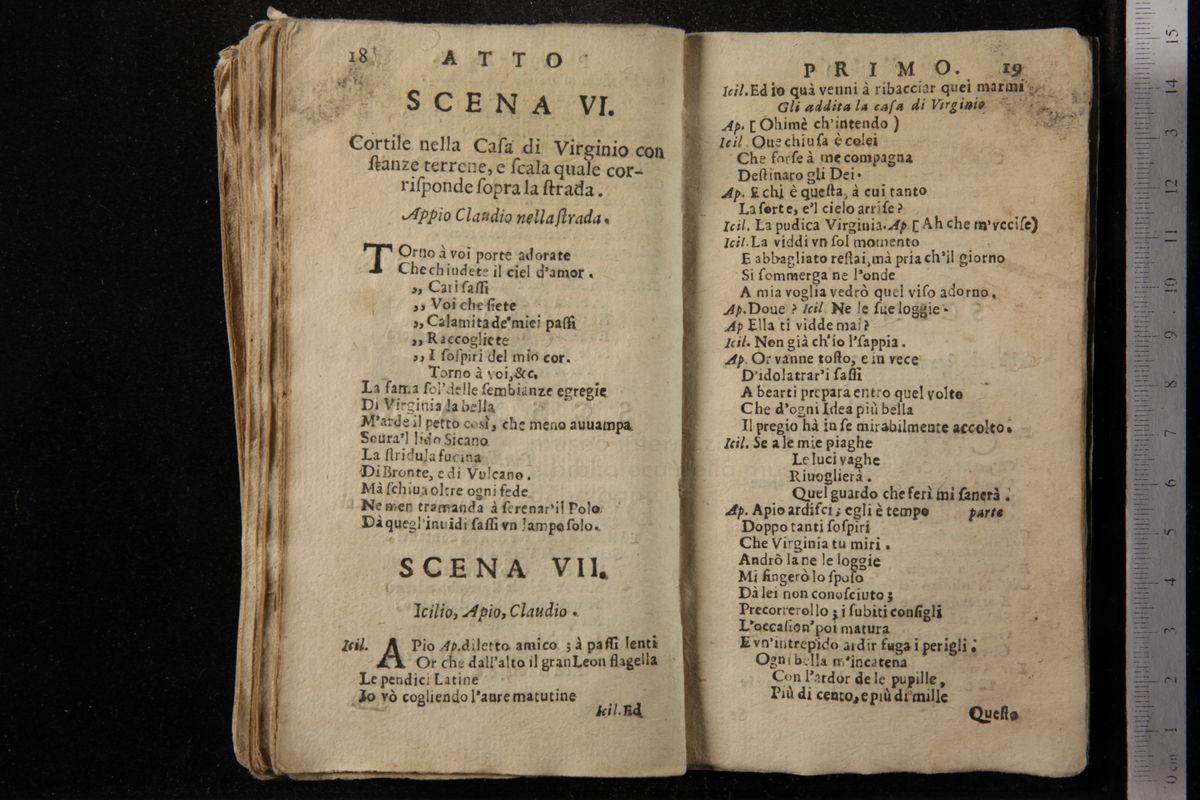 18 ATTO
SCENA VI.
Cortile nella Caſa di Virginio con
ſtanze terrene, e ſcala quale cor-
riſponde ſopra la ſtrada.
Appio Claudio nella ſtrada.
TOrno à voi porte adorate
Che chiudete il ciel d'amor.
„ Cari ſaſſi
„ Voi che ſiete
„ Calamita de' miei paſſi
„ Raccogliete
„ I ſoſpiri del mio cor.
Torno à voi, &c.
La fama ſol' delle ſembianze egregie
Di Virginia la bella
M'arde il petto così, che meno auuampa
Soura'l lido Sicano
La ſtridula fucina
Di Bronte, e di Vulcano.
Mà ſchiua oltre ogni fede
Ne men tramanda à ſerenar'il Polo
Dà quegl'inuidi ſaſſi vn lampo ſolo.
SCENA VII.
Icilio, Apio, Claudio.
Icil. APio Ap. diletto amico; à paſſi lenti
Or che dall'alto il gran Leon flagella
Le pendici Latine
Io vò cogliendo l'aure matutine
Icil. Ed
PRIMO. 19
Icil. Ed io quà venni à ribacciar quei marmi
Gli addita la caſa di Virginio
Ap. [ Ohimè ch'intendo )
Icil. Oue chiuſa è colei
Che forſe à me compagna
Deſtinaro gli Dei.
Ap. E chi è queſta, à cui tanto
La ſorte, e'l cielo arriſe?
Icil. La pudica Virginia. Ap. [ Ah che m'vcciſe)
Icil. La viddi vn ſol momento
E abbagliato reſtai, mà pria ch'il giorno
Si ſommerga ne l'onde
A mia voglia vedrò quel viſo adorno.
Ap. Doue? Icil Ne le ſue loggie.
Ap Ella ti vidde mai?
Icil. Non già ch'io l'ſappia.
Ap. Or vanne toſto, e in vece
D'idolatrar'i ſaſſi
A bearti prepara entro quel volto
Che d'ogni Idea più bella
Il pregio hà in ſe mirabilmente accolto.
Icil. Se a le mie piaghe
Le luci vaghe
Riuoglierà.
Quel guardo che ferì mi ſanerà. parte
Ap. Apio ardiſci; egli è tempo
Doppo tanti ſoſpiri
Che Virginia tu miri.
Andrò la ne le loggie
Mi fingerò lo ſpoſo
Dà lei non conoſciuto;
Precorrerollo; i ſubiti conſigli
L'occaſion' poi matura
E vn'intrepido ardir fuga i perigli.
Ogni bella m'incatena
Con l'ardor de le pupille,
Più di cento, e più di mille
Queſto